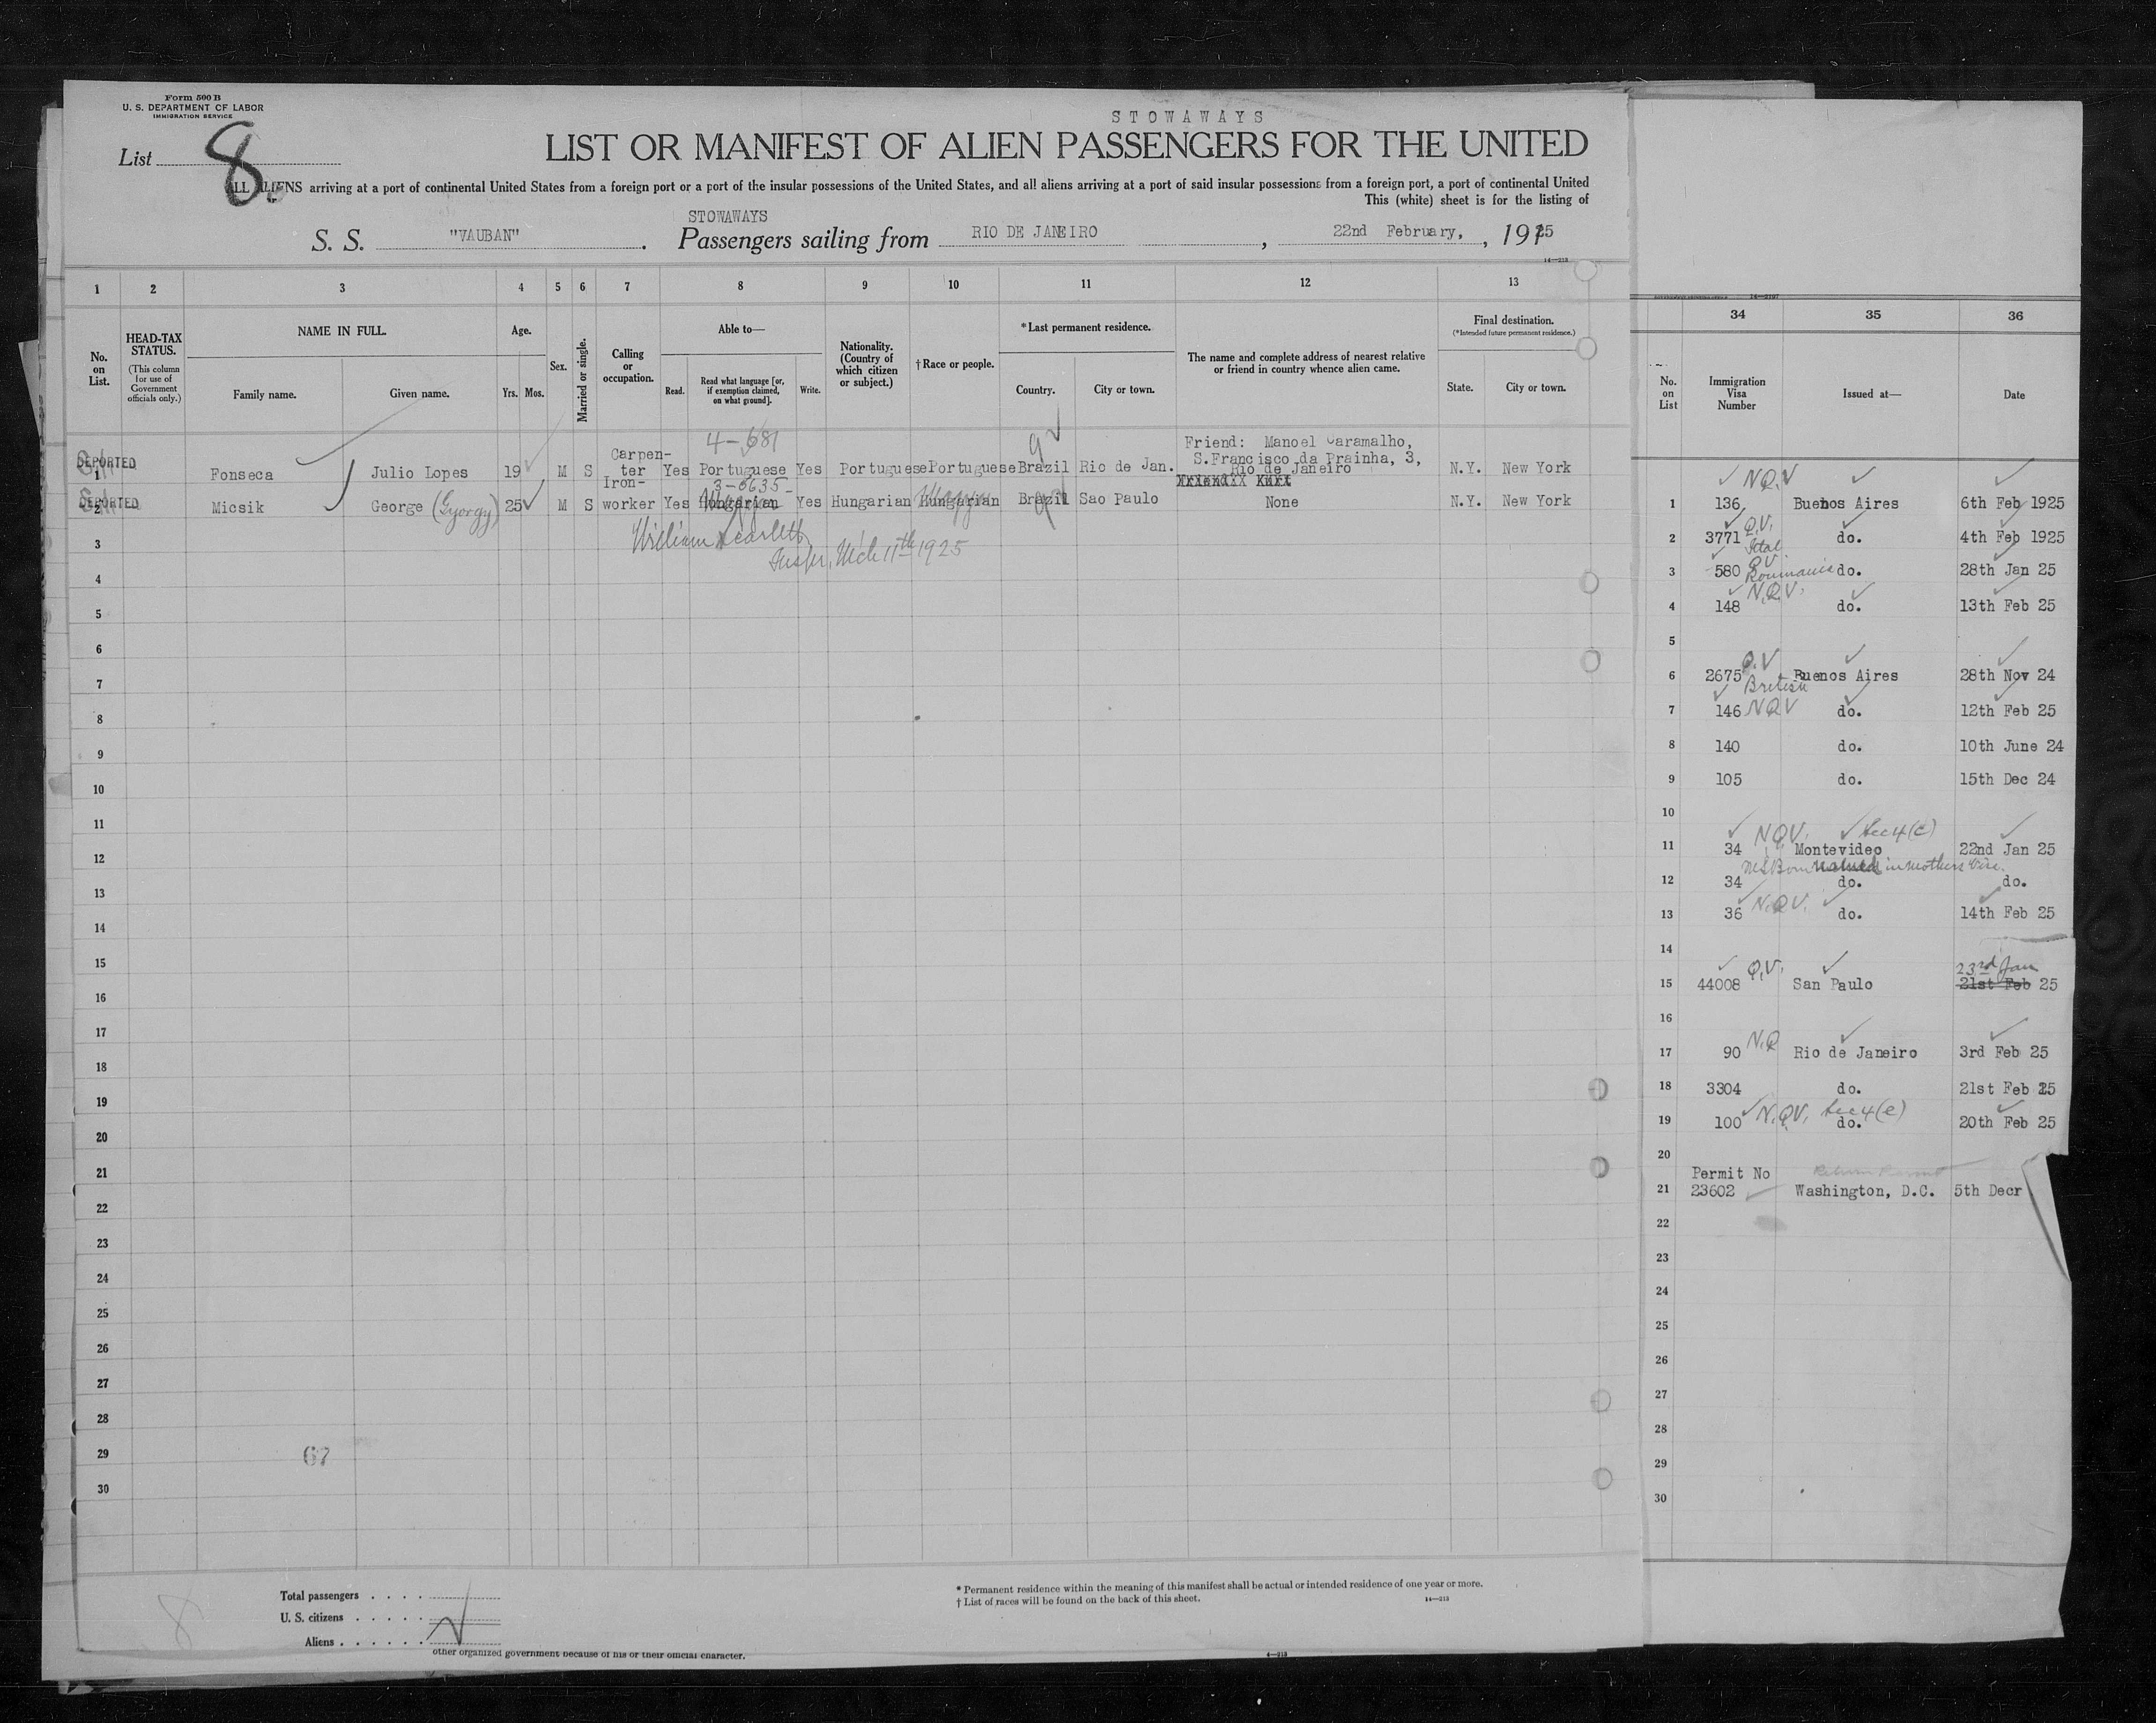 Form 500 B
U. S. DEPARTMENT OF LABOR
IMMIGRATION SERVICE
List 8
STOWAWAYS
LIST OR MANIFEST OF ALIEN PASSENGERS FOR THE UNITED
ALL ALIENS arriving at a port of continental United States from a foreign port or a port of the insular possessions of the United States, and all aliens arriving at a port of said insular possessions from a foreign port, a port of continental United
This (white) sheet is for the listing of
STOWAWAYS
S. S. "VAUBAN". Passengers sailing from RIO DE JANEIRO, 22nd February, , 1925
14—213
1 2 3 4 5 6 7 8 9 10 11 12 13
No. on List.
HEAD-TAX STATUS.
(This column for use of Government officials only.)
NAME IN FULL.
Family name. Given name.
Age.
Yrs. Mos.
Sex.
Married or single.
Calling or occupation.
Able to—
Read. Read what language [or, if exemption claimed, on what ground]. Write.
Nationality. (Country of which citizen or subject.)
† Race or people.
* Last permanent residence.
Country. City or town.
The name and complete address of nearest relative or friend in country whence alien came.
Final destination.
(*Intended future permanent residence.)
State. City or town.
4-681
DEPORTED
1 Fonseca Julio Lopes 19 M S Carpenter Yes Portuguese Yes Portuguese Portuguese Brazil Rio de Jan. Friend: Manoel Caramalho, S.Francisco da Prainha, 3, Rio de Janeiro N.Y. New York
3-6635
DEPORTED
2 Micsik George (Gyorgy) 25 M S Iron-worker Yes Hungarian Yes Hungarian Hungarian Brazil Sao Paulo None N.Y. New York
William Scarlett
Insp., Mch 11th 1925
3
4
5
6
7
8
9
10
11
12
13
14
15
16
17
18
19
20
21
22
23
24
25
26
27
28
29 67
30
Total passengers . . . .
U. S. citizens . . . . .
Aliens . . . . . .
* Permanent residence within the meaning of this manifest shall be actual or intended residence of one year or more.
† List of races will be found on the back of this sheet.
14—213
other organized government because of his or their official character.
8
14—3797
34 35 36
No. on List
Immigration Visa Number
Issued at—
Date
N.Q.V
1 136 Buenos Aires 6th Feb 1925
2 3771 Q.V. Ital do. 4th Feb 1925
3 580 Q.V Roumania do. 28th Jan 25
4 148 N.Q.V. do. 13th Feb 25
5
6 2675 Q.V British Buenos Aires 28th Nov 24
7 146 NQV do. 12th Feb 25
8 140 do. 10th June 24
9 105 do. 15th Dec 24
10
N.Q.V. Sec 4(c)
11 34 Montevideo 22nd Jan 25
in mothers Visa.
12 34 do. do.
13 36 N.Q.V. do. 14th Feb 25
14
23rd Jan
15 44008 Q.V. San Paulo 21st Feb 25
16
17 90 N.Q Rio de Janeiro 3rd Feb 25
18 3304 do. 21st Feb 25
19 100 N.Q.V. Sec 4(e) do. 20th Feb 25
20
Permit No Return Permit
21 23602 Washington, D.C. 5th Decr
22
23
24
25
26
27
28
29
30